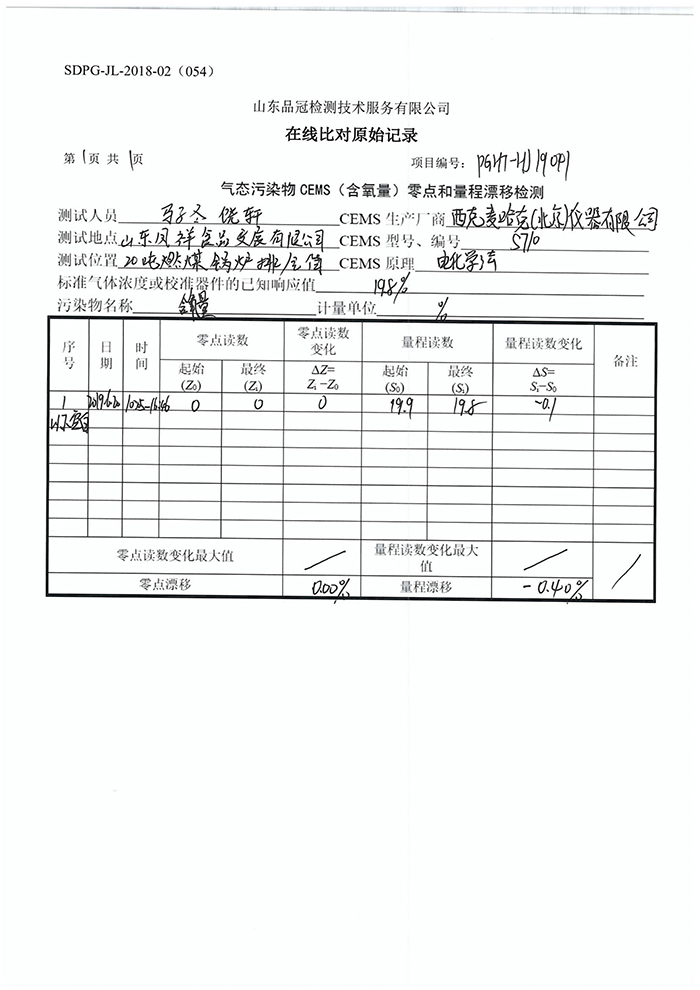 SDPG-JL-2018-02（054）
山东品冠检测技术服务有限公司
在线比对原始记录
第1页 共1页 项目编号：
气态污染物 CEMS（含氧量）零点和量程漂移检测
测试人员 轩 CEMS 生产厂商 西克麦哈克(北京)仪器有限公司
测试地点 山东凤祥食品发展有限公司 CEMS 型号、编号 S710
测试位置 20吨燃煤锅炉排 CEMS 原理 电化学法
标准气体浓度或校准器件的已知响应值 19.8%
污染物名称 含氧量 计量单位 %
序号 日期 时间 零点读数 零点读数变化 量程读数 量程读数变化 备注
起始(Z₀) 最终(Zᵢ) ΔZ=Zᵢ-Z₀ 起始(S₀) 最终(Sᵢ) ΔS=Sᵢ-S₀
1 0 0 0 19.9 19.8 -0.1
以下空白
零点读数变化最大值 / 量程读数变化最大值 / /
零点漂移 0.00% 量程漂移 -0.40%